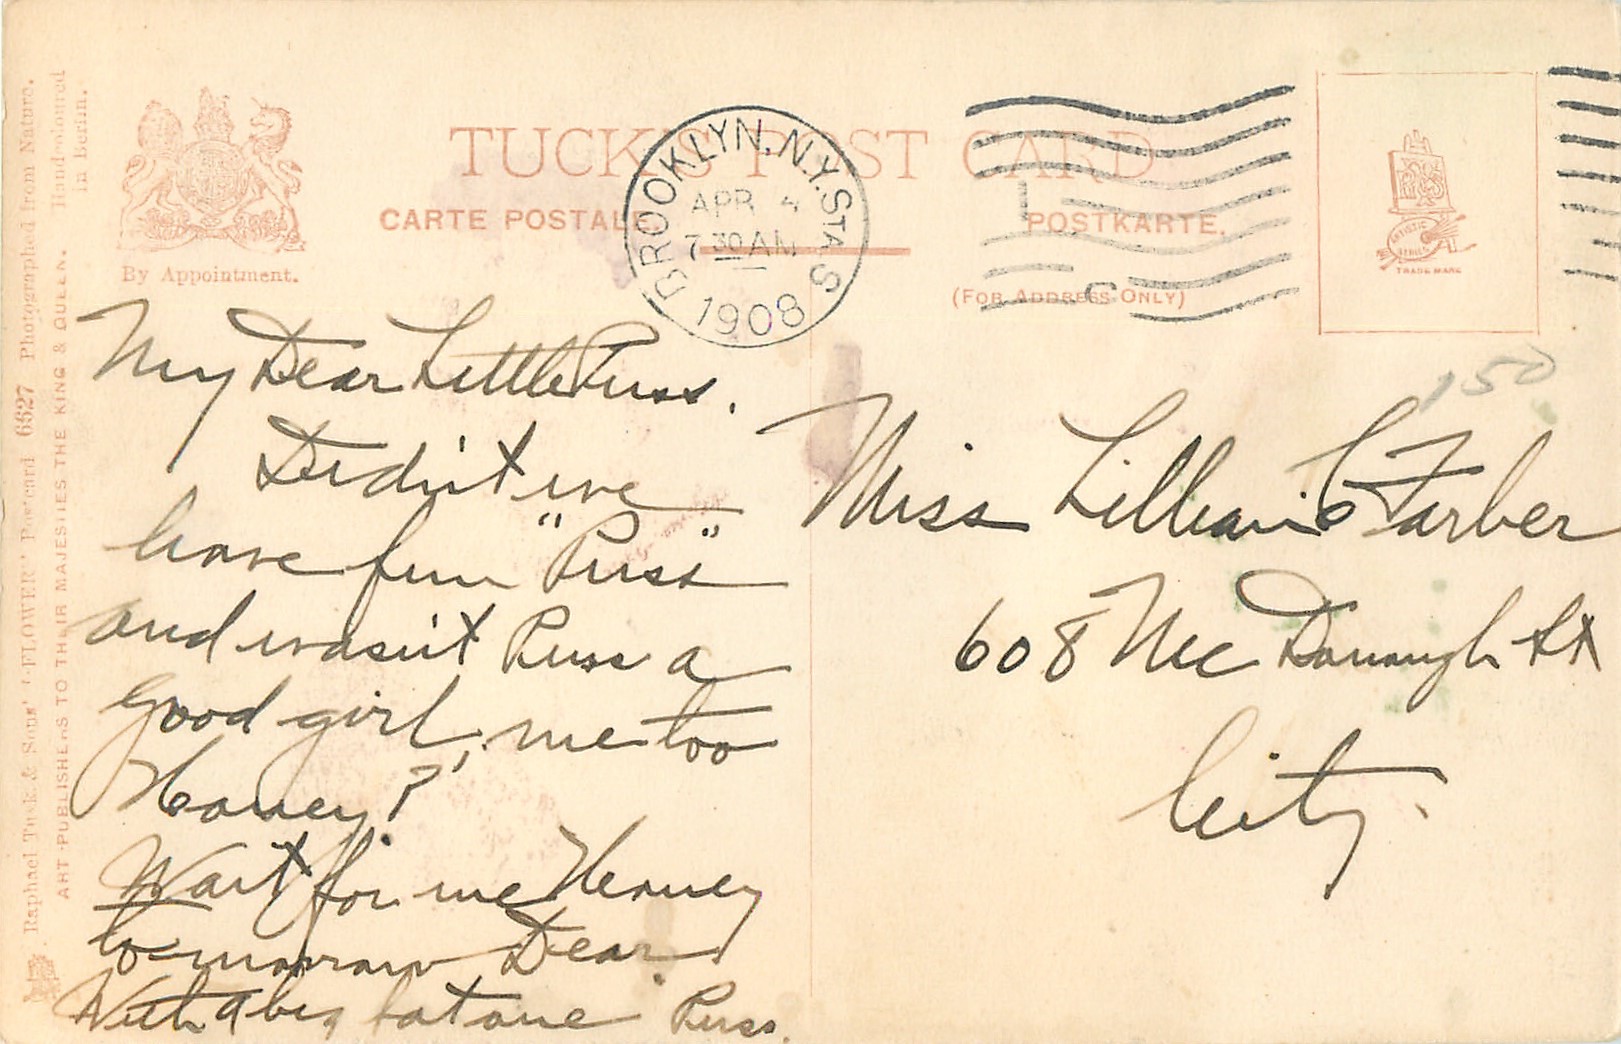 TUCK'S POST CARD
CARTE POSTALE.
POSTKARTE.
(FOR ADDRESS ONLY)
By Appointment.
BROOKLYN, N.Y. STA. S
APR 4
7 30 AM
1908
C
TRADE MARK
150
My Dear Little Puss.
Didn't we
have fun "Puss"
and wasn't Puss a
good girl, me too
Honey?
Wait for me Honey
to-morrow Dear.
With a big fat one Puss.
Miss Lillian C Farber
608 McDonough St
City.
Raphael Tuck & Sons' "FLOWER" Postcard 6627 Photographed from Nature. Handcoloured
in Berlin.
ART PUBLISHERS TO THEIR MAJESTIES THE KING & QUEEN.